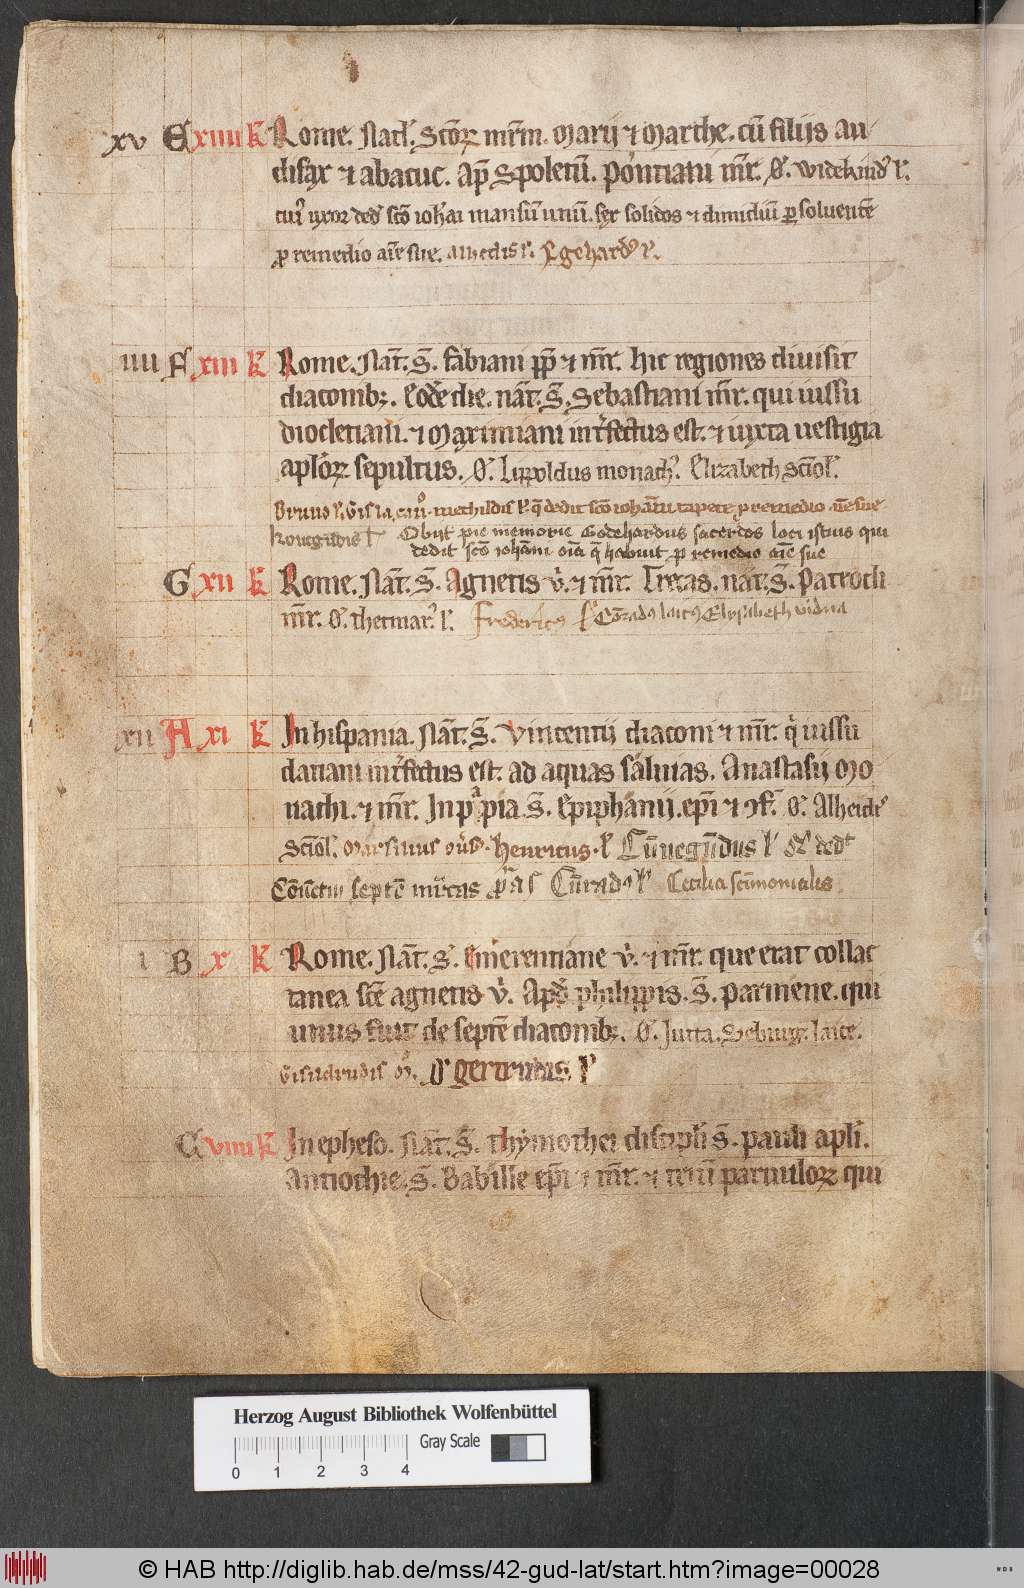 xv E xiiii k Rome. Nacł. Scōꝝ mr̄m. Marij ⁊ Marthe. cū filijs au
difax ⁊ abacuc. Ap̄ Spoletū. Pontiani mr̄. O. Widekind9 l'.
uxor ded' sc̄o ioh'ai mansū unū. sex solidos ⁊ dimidiū ꝑsoluentē
ꝓ remedio aīe sue. l'. Egehard9 l'.
iiii F xiii k Rome. Nat̄. S. Fabiani pp̄ ⁊ mr̄. hic regiones diuisit
diaconibꝫ. Eodē die. nat̄. S. Sebastiani mr̄. qui iussu
diocletiani. ⁊ Maximiani int'fectus est. ⁊ iuxta uestigia
apl'oꝝ sepultus. O. Lippoldus monach9. Elizabeth sc̄iol'.
Bruno l'. Gisla, methildis l' q̄ dedit sc̄o ioh̄ani tapete ꝓ remedio aīe sue
Obijt pie memorie Godehardus sacerdos loci istius qui
dedit sc̄o ioh̄ani oīa q̄ habuit ꝓ remedio aīe sue
G xii k Rome. Nat̄. S. Agnetis v'. ⁊ mr̄. Trecas. nat̄. S. Patrocli
mr̄. O. thetmar9 l'. Fredericus l' Cōrad9 laic9 Elysabeth vidua
xii A xi k In hispania. Nat̄. S. Vincentij diaconi ⁊ mr̄. q' iussu
datiani int'fectus est. ad aquas saluias. Anastasij mo
nachi. ⁊ mr̄. In p pia. S. Epiphanij. ep̄i ⁊ ɔf. O. Alheidis
Sc̄iol'. henricus. l' Cūnegūdus l' ded'
septē Cūrad9 l' Cecilia sc̄imonialis
i B x k Rome. Nat̄. S. Emerentiane v'. ⁊ mr̄. que erat collac
tanea sc̄e agnetis v'. Apd' philippis. S. Parmene. qui
unus fuit de septē diaconibꝫ. O. Jutta. Seburg. laice.
Gertrudis l'
C viiii k In epheso. Nat̄. S. Thymothei discipl'i S. pauli apl'i.
Antiochie. S. Babille ep̄i ⁊ mr̄. ⁊ triū paruuloꝝ qui
Herzog August Bibliothek Wolfenbüttel
Gray Scale
0 1 2 3 4
© HAB http://diglib.hab.de/mss/42-gud-lat/start.htm?image=00028